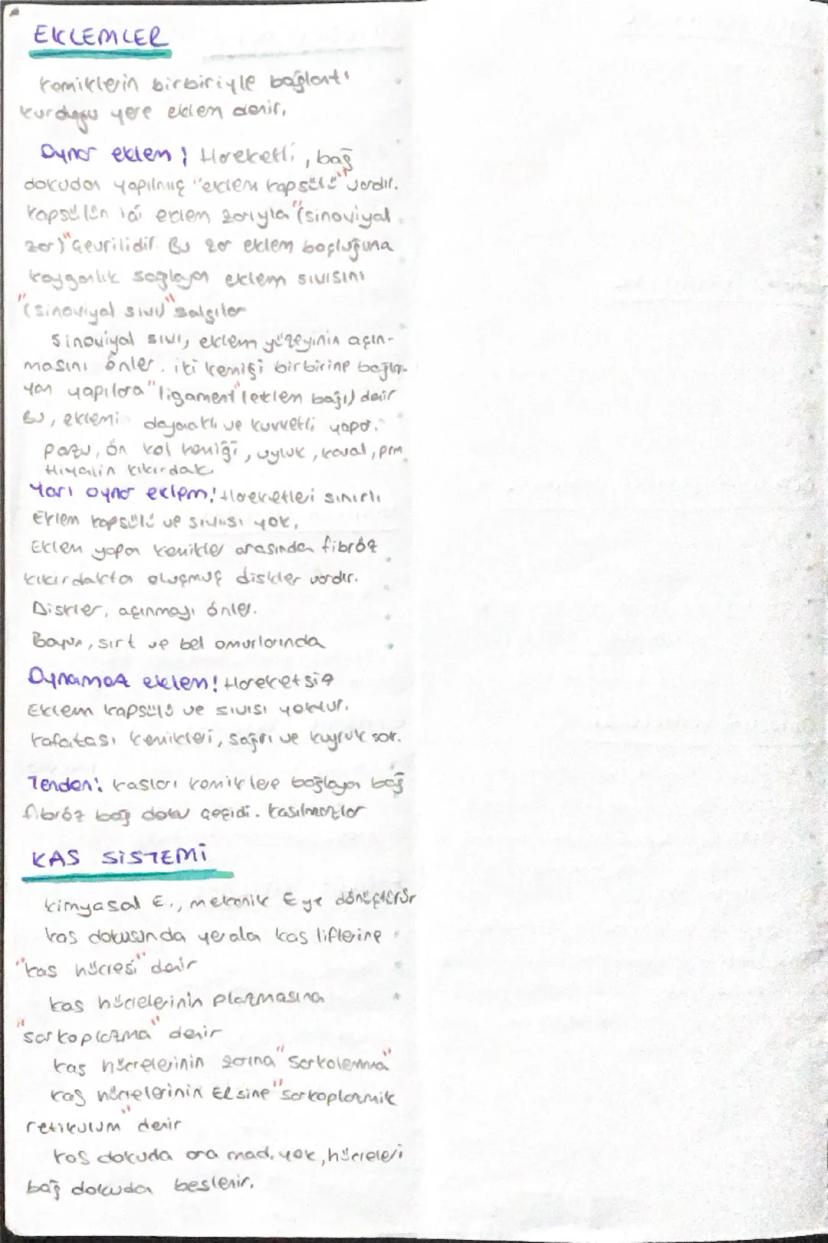 EKLEMLER
Kemiklerin birbiriyle bağlantı
kurduğu yere eklem denir.
Oynar eklem: Hareketli, bağ
dokudan yapılmış "eklem kapsülü" vardır.
Kapsülün içi eklem zarıyla "(sinoviyal
zar)" çevrilidir. Bu zar eklem boşluğuna
kayganlık sağlayan eklem sıvısını
"(sinoviyal sıvı)" salgılar
Sinoviyal sıvı, eklem yüzeyinin aşın-
masını önler. iki kemiği birbirine bağla-
yan yapılara "ligament" (eklem bağı) denir
Bu, eklemi dayanıklı ve kuvvetli yapar.
pazu, ön kol kemiği, uyluk, kaval,
Hiyalin kıkırdak
Yarı oynar eklem: Hareketleri sınırlı
Eklem kapsülü ve sıvısı yok.
Eklem yapan kemikler arasından fibröz
kıkırdakta oluşmuş diskler vardır.
Diskler, aşınmayı önler.
Boyun, sırt ve bel omurlarında
Oynamaz eklem: Hareketsiz
Eklem kapsülü ve sıvısı yoktur.
Kafatası kemikleri, sağrı ve kuyruk sok.
Tendon: Kasları kemiklere bağlayan bağ
fibröz bağ doku çeşidi. Kasılmazlar
KAS SİSTEMİ
Kimyasal E., mekanik E ye dönüştürür
Kas dokusunda yer ala kas liflerine
"kas hücresi" denir
Kas hücrelerinin plazmasına
"sarkoplazma" denir
Kas hücrelerinin zarına "Sarkolemma"
Kas hücrelerinin ER sine "sarkoplazmik
retikulum" denir
Kas dokuda ara mad. yok, hücreleri
bağ dokuda beslenir.